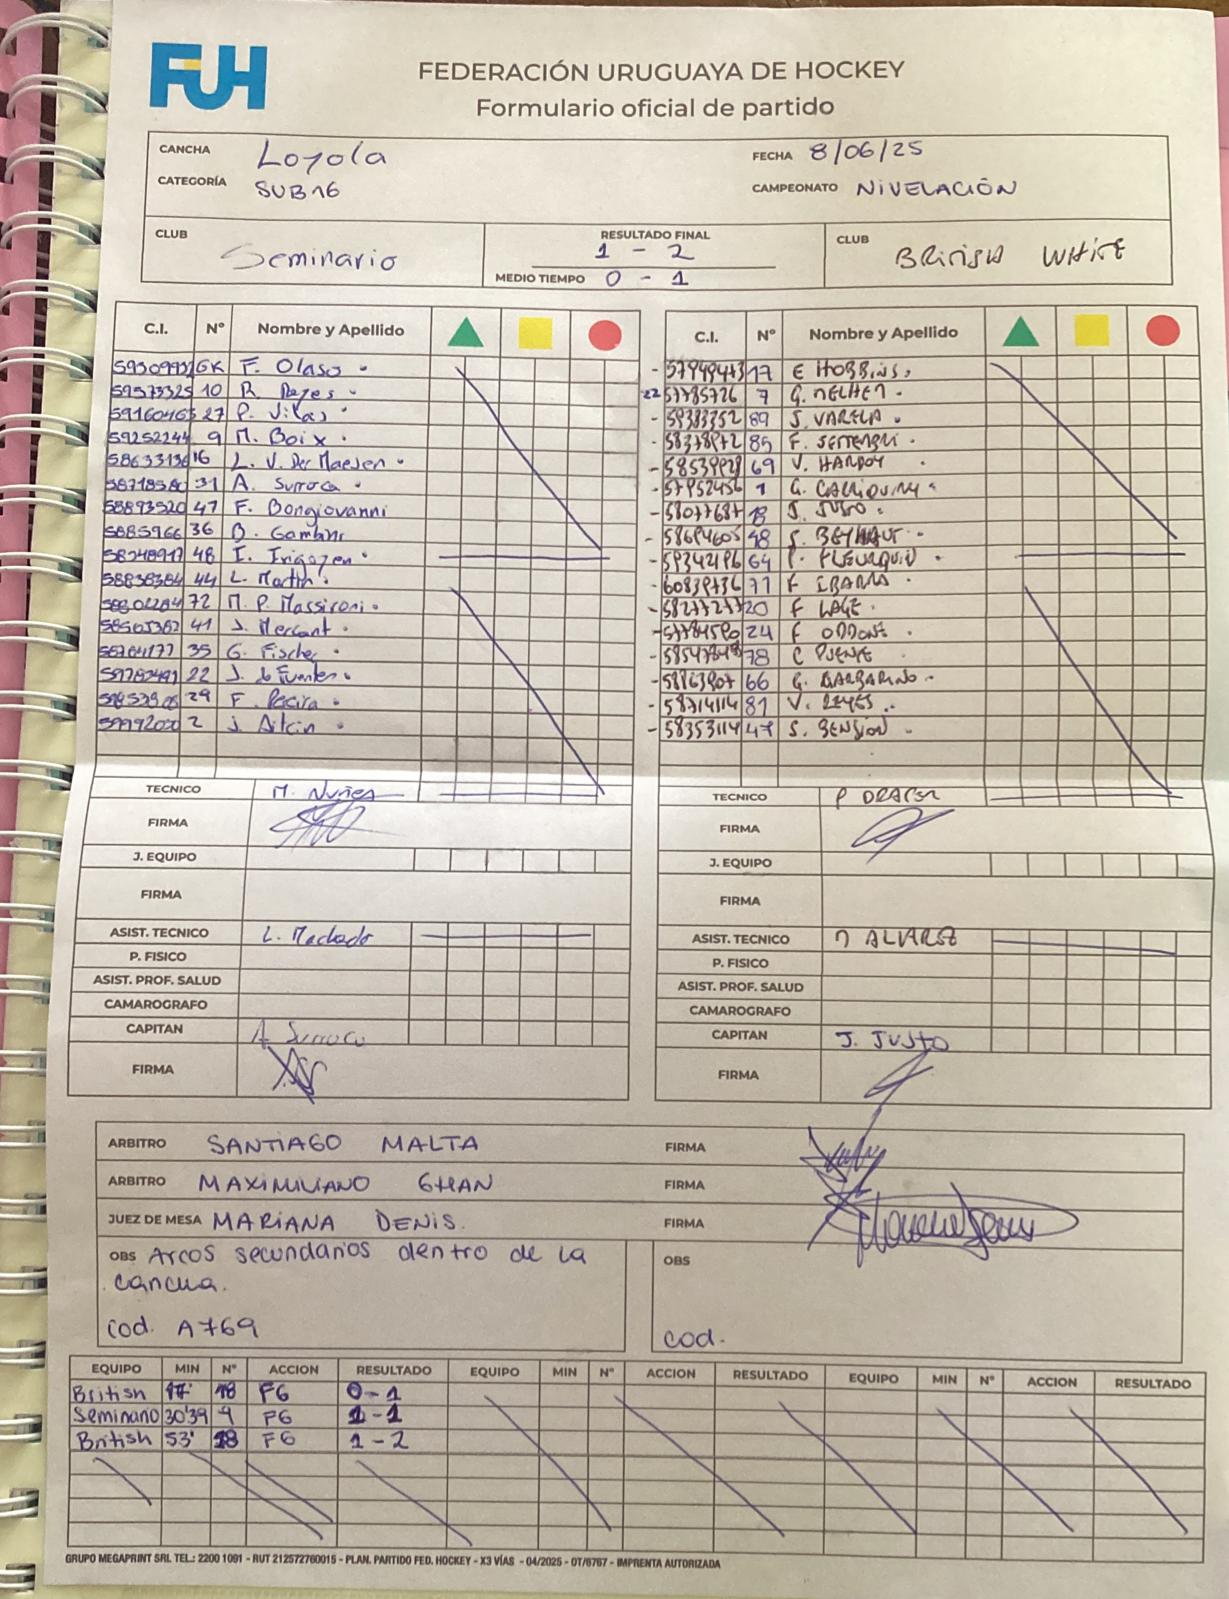 FUH
FEDERACIÓN URUGUAYA DE HOCKEY
Formulario oficial de partido
CANCHA Loyola FECHA 8/06/25
CATEGORÍA SUB16 CAMPEONATO NIVELACIÓN
CLUB Seminario RESULTADO FINAL 1 - 2 CLUB BRITISH WHITE
MEDIO TIEMPO 0 - 1
C.I. Nº Nombre y Apellido C.I. Nº Nombre y Apellido
GK F. Olaso 17 E HOBBINS
59573325 10 R. 22 57785726 7 G.
59160463 27 P. Vilas 59383352 89 S. VARELA
59252244 9 M. Boix 85 F.
16 L. V. Der Maesen 69 V. HARDOY
31 A. Surroca 1 G.
58893520 47 F. Bongiovanni 18 J. JUSTO
5885966 36 B. Gambini 58694605 48 S.
48 I. Irigoyen 59342196 64 P. FLEURQUIN
44 L. Martin 71 F
72 M. P. Massironi 20 F LAGE
41 J. Mercant 24 F ODDONE
35 G. Fischer 78 C PUENTE
22 J. de Fuentes 66 G. BARBARINO
29 F. Pereira 58714114 81 V. REYES
2 J. Aitcin 58353114 47 S. BENSION
TECNICO M. Nuñez TECNICO P
FIRMA FIRMA
J. EQUIPO J. EQUIPO
FIRMA FIRMA
ASIST. TECNICO L. Machado ASIST. TECNICO ALVAREZ
P. FISICO P. FISICO
ASIST. PROF. SALUD ASIST. PROF. SALUD
CAMAROGRAFO CAMAROGRAFO
CAPITAN A. Surroca CAPITAN J. JUSTO
FIRMA FIRMA
ARBITRO SANTIAGO MALTA FIRMA
ARBITRO MAXIMILIANO GHAN FIRMA
JUEZ DE MESA MARIANA DENIS. FIRMA
OBS Arcos secundarios dentro de la OBS
cancha.
cod. A769 cod.
EQUIPO MIN Nº ACCION RESULTADO EQUIPO MIN Nº ACCION RESULTADO EQUIPO MIN Nº ACCION RESULTADO
British 17' 18 FG 0-1
Seminario 30'39 9 FG 1-1
British 53' 18 FG 1-2
GRUPO MEGAPRINT SRL TEL.: 2200 1091 - RUT 212572760015 - PLAN. PARTIDO FED. HOCKEY - X3 VÍAS - 04/2025 - OT/6767 - IMPRENTA AUTORIZADA